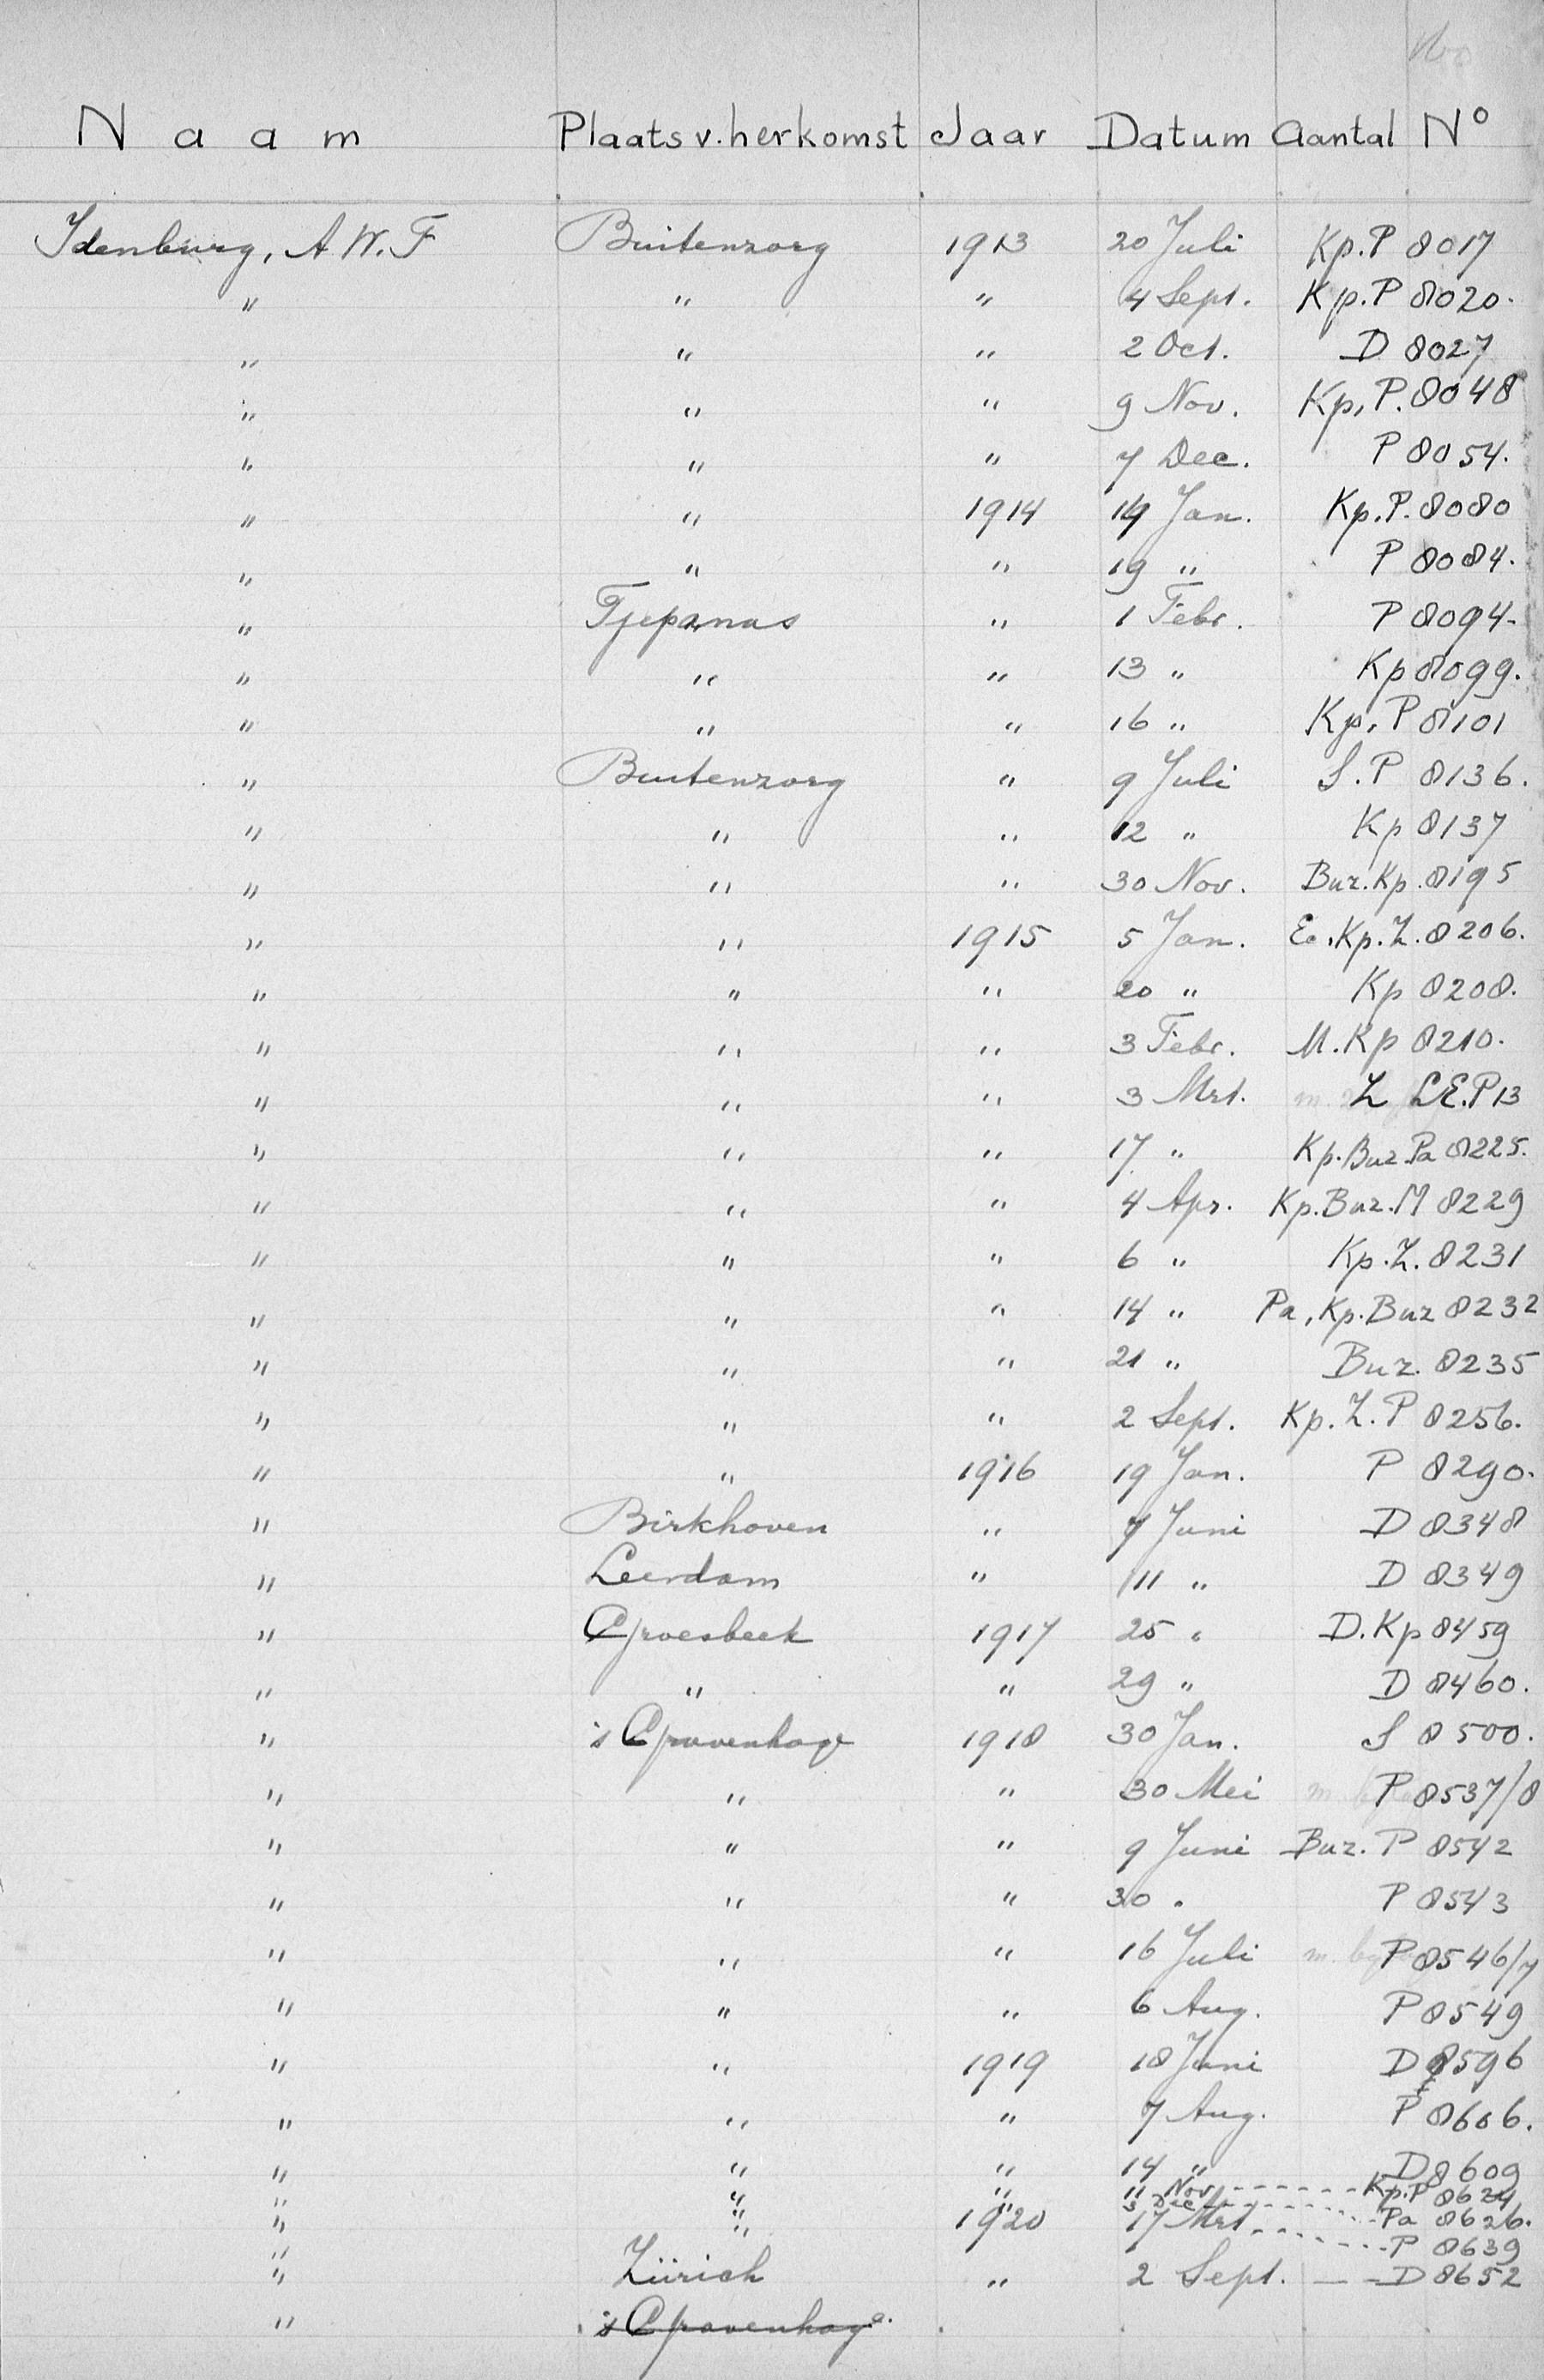 Naam Plaats v. herkomst Jaar Datum Aantal No
Idenburg, A.W.F Buitenzorg 1913 20 Juli Kp. P 8017
" " " 4 Sept. Kp. P 8020.
" " " 2 Oct. D 8027
" " " 9 Nov. Kp, P. 8048
" " " 7 Dec. P 8054.
" " 1914 14 Jan. Kp. P. 8080
" " " 19 " P 8084.
" Tjepanas " 1 Febr. P 8094.
" " " 13 " Kp 8099.
" " " 16 " Kp, P 8101
" Buitenzorg " 9 Juli S. P 8136.
" " " 12 " Kp 8137
" " " 30 Nov. Buz. Kp. 8195
" " 1915 5 Jan. Ee. Kp. Z. 8206.
" " " 20 " Kp 8208.
" " " 3 Febr. M. Kp 8210.
" " " 3 Mrt. Z L.E.P 13
" " " 17 " Kp. Buz Pa 8225.
" " " 4 Apr. Kp. Buz. M 8229
" " " 6 " Kp. Z. 8231
" " " 14 " Pa, Kp. Buz 8232
" " " 21 " Buz. 8235
" " " 2 Sept. Kp. Z. P 8256.
" " 1916 19 Jan. P 8290.
" Birkhoven " 7 Juni D 8348
" Leerdam " 11 " D 8349
" Groesbeek 1917 25 " D. Kp 8459
" " " 29 " D 8460.
" 's Gravenhage 1918 30 Jan. S 8500.
" " " 30 Mei P 8537/8
" " " 9 Juni Buz. P 8542
" " " 30 " P 8543
" " " 16 Juli P 8546/7
" " " 6 Aug. P 8549
" " 1919 18 Juni D 8596
" " " 7 Aug. P 8606.
" " " 14 " D 8609
" " " 11 Nov. Kp. P 8624
" " " 3 Dec Pa 8626.
" " 1920 17 Mrt. P 8639
" Zürich " 2 Sept. D 8652
" 's Gravenhage.